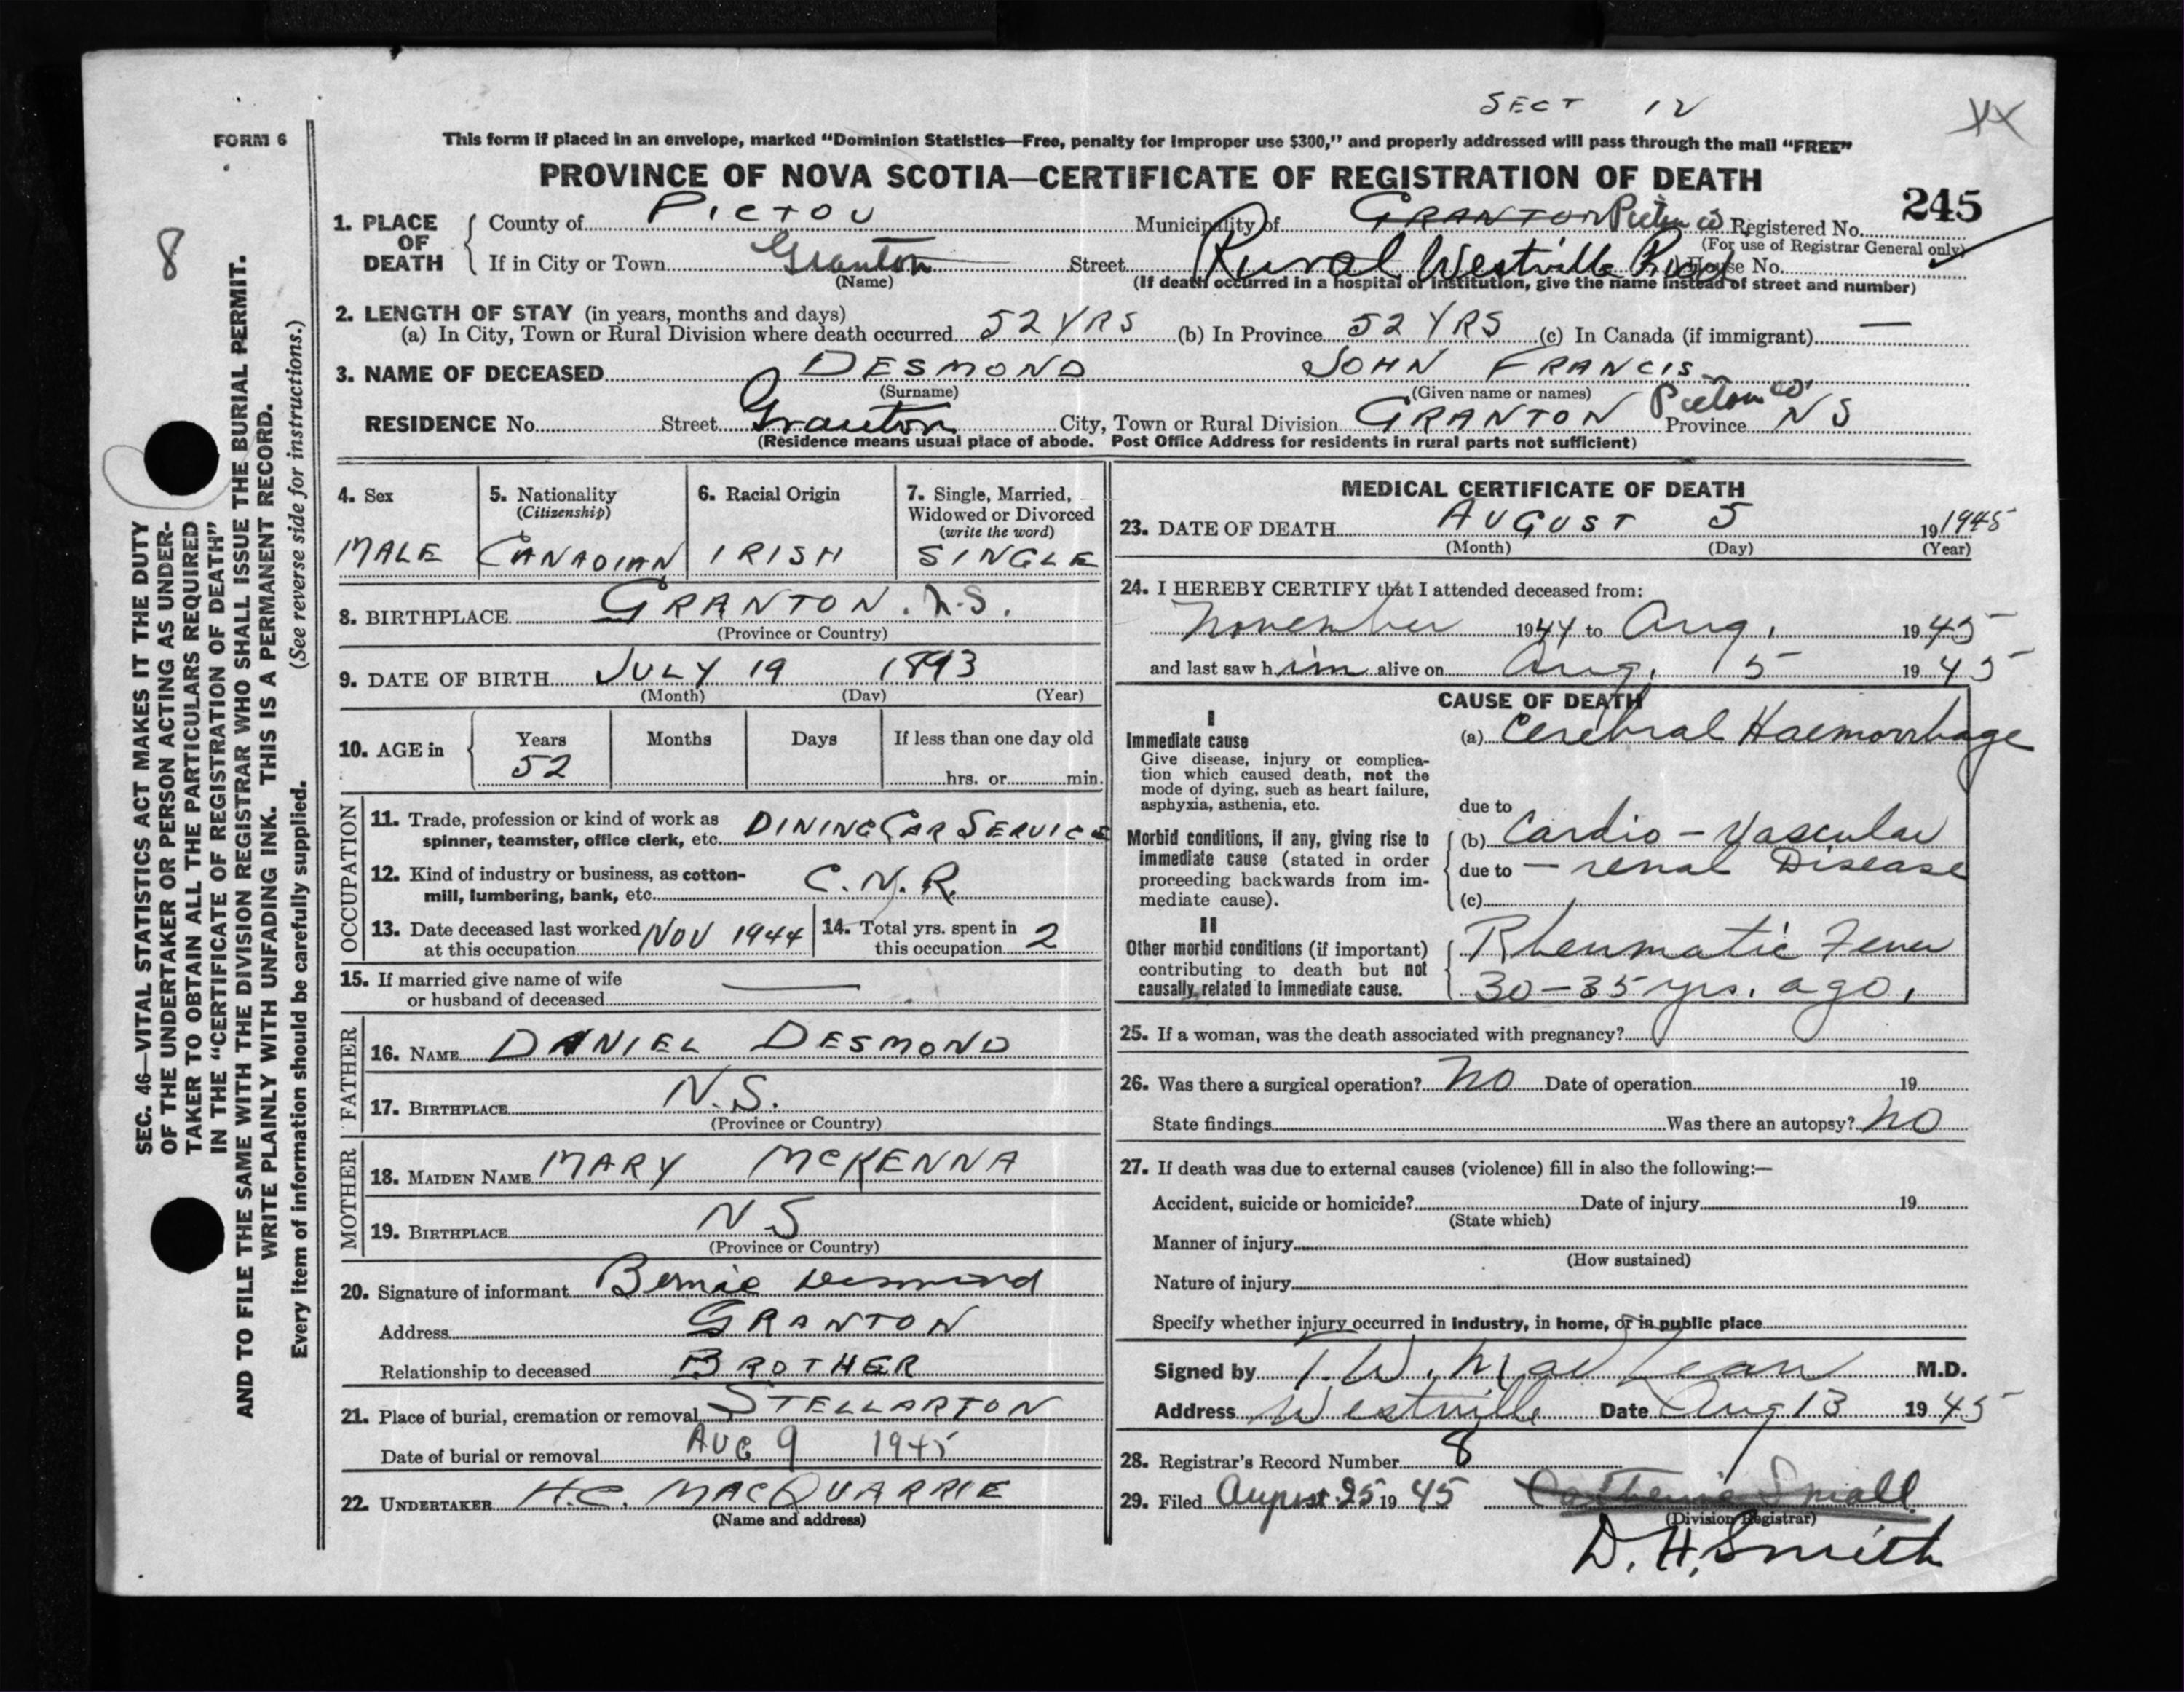 SECT 12
XX
FORM 6
This form if placed in an envelope, marked “Dominion Statistics—Free, penalty for improper use $300,” and properly addressed will pass through the mail “FREE”
PROVINCE OF NOVA SCOTIA—CERTIFICATE OF REGISTRATION OF DEATH
245
8
1. PLACE OF DEATH
County of PICTOU Municipality of GRANTON Pictou Co Registered No.
(For use of Registrar General only)
If in City or Town Granton Street Rural Westville Road House No.
(Name)
(If death occurred in a hospital or institution, give the name instead of street and number)
2. LENGTH OF STAY (in years, months and days)
(a) In City, Town or Rural Division where death occurred 52 YRS (b) In Province 52 YRS (c) In Canada (if immigrant) —
3. NAME OF DECEASED DESMOND JOHN FRANCIS
(Surname) (Given name or names)
RESIDENCE No. Street Granton City, Town or Rural Division GRANTON Pictou Co. Province N S
(Residence means usual place of abode. Post Office Address for residents in rural parts not sufficient)
SEC. 46—VITAL STATISTICS ACT MAKES IT THE DUTY
OF THE UNDERTAKER OR PERSON ACTING AS UNDER-
TAKER TO OBTAIN ALL THE PARTICULARS REQUIRED
IN THE “CERTIFICATE OF REGISTRATION OF DEATH”
AND TO FILE THE SAME WITH THE DIVISION REGISTRAR WHO SHALL ISSUE THE BURIAL PERMIT.
WRITE PLAINLY WITH UNFADING INK. THIS IS A PERMANENT RECORD.
Every item of information should be carefully supplied. (See reverse side for instructions.)
4. Sex
MALE
5. Nationality
(Citizenship)
CANADIAN
6. Racial Origin
IRISH
7. Single, Married,
Widowed or Divorced
(write the word)
SINGLE
8. BIRTHPLACE GRANTON. N.S.
(Province or Country)
9. DATE OF BIRTH JULY 19 1893
(Month) (Day) (Year)
10. AGE in
Years Months Days If less than one day old
52 hrs. or min.
OCCUPATION
11. Trade, profession or kind of work as
spinner, teamster, office clerk, etc. DINING CAR SERVICE
12. Kind of industry or business, as cotton-
mill, lumbering, bank, etc. C.N.R.
13. Date deceased last worked
at this occupation NOV 1944
14. Total yrs. spent in
this occupation 2
15. If married give name of wife
or husband of deceased —
FATHER
16. NAME DANIEL DESMOND
17. BIRTHPLACE N.S.
(Province or Country)
MOTHER
18. MAIDEN NAME MARY MCKENNA
19. BIRTHPLACE N S
(Province or Country)
20. Signature of informant Bernie Desmond
Address GRANTON
Relationship to deceased BROTHER
21. Place of burial, cremation or removal STELLARTON
Date of burial or removal AUG 9 1945
22. UNDERTAKER H.C. MACQUARRIE
(Name and address)
MEDICAL CERTIFICATE OF DEATH
23. DATE OF DEATH AUGUST 5 19 1945
(Month) (Day) (Year)
24. I HEREBY CERTIFY that I attended deceased from:
November 1944 to Aug. 1945
and last saw him alive on Aug. 5 1945
CAUSE OF DEATH
I
Immediate cause
Give disease, injury or complica-
tion which caused death, not the
mode of dying, such as heart failure,
asphyxia, asthenia, etc.
(a) Cerebral Haemorrhage
due to
Morbid conditions, if any, giving rise to
immediate cause (stated in order
proceeding backwards from im-
mediate cause).
(b) Cardio-Vascular
due to – renal Disease
(c)
II
Other morbid conditions (if important)
contributing to death but not
causally related to immediate cause.
Rheumatic Fever
30-35 yrs. ago.
25. If a woman, was the death associated with pregnancy?
26. Was there a surgical operation? No Date of operation 19
State findings Was there an autopsy? No
27. If death was due to external causes (violence) fill in also the following:—
Accident, suicide or homicide? Date of injury 19
(State which)
Manner of injury
(How sustained)
Nature of injury
Specify whether injury occurred in industry, in home, or in public place
Signed by T.W. MacLean M.D.
Address Westville Date Aug 13 1945
28. Registrar's Record Number 8
29. Filed August 25 1945 Catherine Small
(Division Registrar)
D. H. Smith